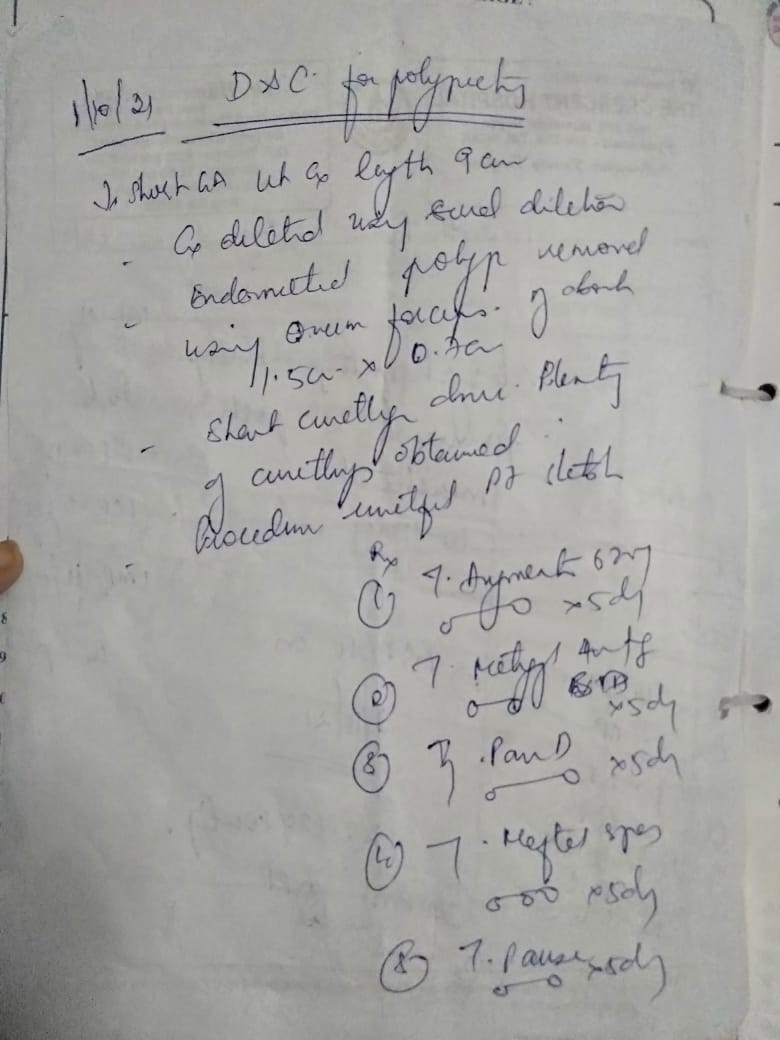 1/10/21 D&C for polypectomy
In short GA ut cx length 9 cm
- Cx dilated using serial dilators
- Endometrial polyp removed
using ovum forceps. of about
1.5cm x 0.7cm
- Sharp curettage done. Plenty
of curettings obtained.
- Procedure uneventful pt stable
Rx
① T. Augmentin 625mg
o—o x5dy
② T. 400mg
o—o x5dy
③ T. Pan D x5dy
o—o
④ T. Meftal spas
ooo x5dy
⑤ T. Pause x5dy
o—o